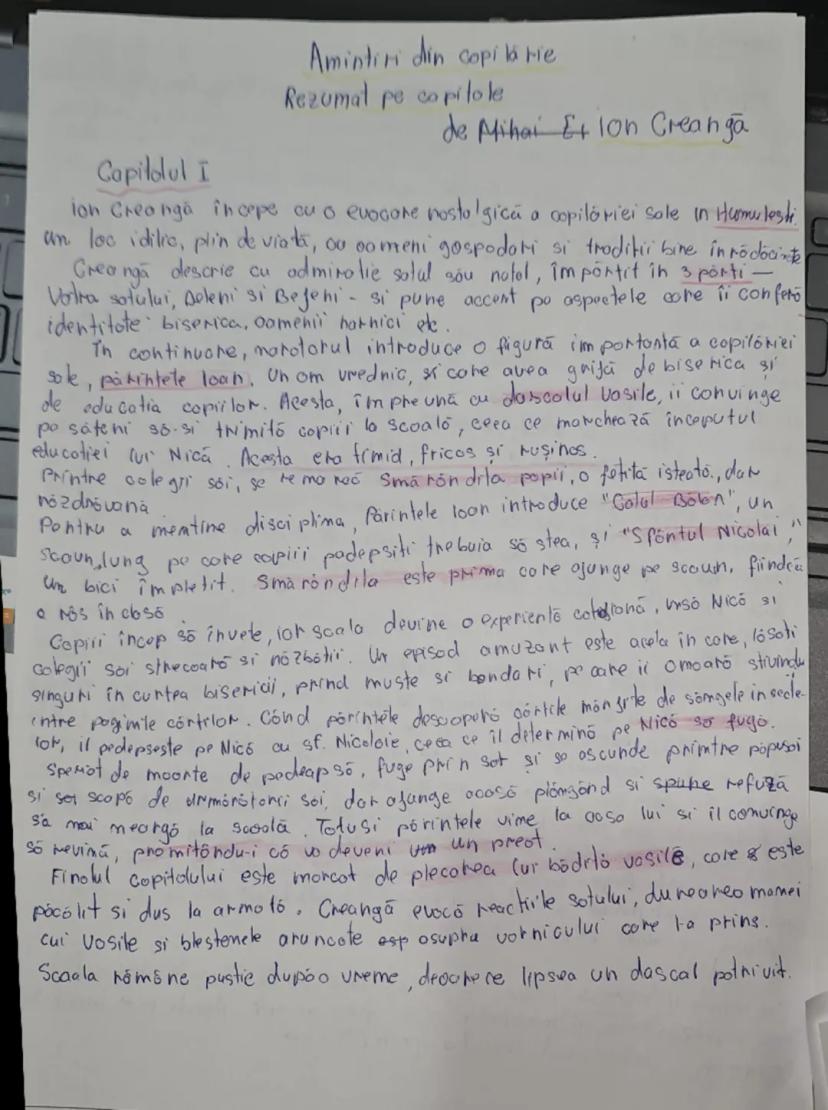 Amintiri din copilărie
Rezumat pe capitole
de Mihai E Ion Creangă
Capitolul I
Ion Creangă începe cu o evocare nostalgică a copilăriei sale în Humulești.
un loc idilic, plin de viată, cu oameni gospodari si traditii bine înrădăcinate
Creangă descrie cu admiratie satul său natal, împărtit în 3 părti –
Vatra satului, Deleni si Bejeni - si pune accent pe aspectele care îi conferă
identitate: biserica, oamenii harnici etc.
În continuare, naratorul introduce o figură importantă a copilăriei
sale, părintele Ioan. Un om vrednic, si care avea grijă de biserica și
de educatia copiilor. Acesta, împreună cu dascalul Vasile, ii convinge
pe săteni să-si trimită copiii la scoală, ceea ce marchează începutul
educatiei lui Nică. Acesta era timid, fricos și rușinos.
Printre colegii săi, se remarcă Smărăndita popii, o fetită isteată, dar
năzdrăvană
Pentru a mentine disciplina, Părintele Ioan introduce "Calul Bălan", un
scaun lung pe care copiii pedepsiti trebuia să stea, și "Sfântul Nicolai",
un bici împletit. Smărăndita este prima care ajunge pe scaun, fiindcă
a râs în
Copiii încep să învete, iar scala devine o experientă, însă Nică si
colegii săi strecoară si năzbâtii. Un episod amuzant este acela în care, lăsati
singuri în curtea bisericii, prind muste si bondari, pe care ii omoară strivindu
intre paginile cărtilor. Când părintele descoperă cărtile mânjite de sângele insecte-
lor, il pedepseste pe Nică cu sf. Nicolaie, ceea ce îl determină pe Nică să fugă.
Speriat de moarte de pedeapsă, fuge prin sat și se ascunde printre păpusoi
si scapă de urmăritorii săi, dar ajunge acasă plângând si spune refuză
să mai meargă la scoolă. Totusi părintele vine la casa lui si il convinge
să revină, promitându-i că va deveni un preot.
Finalul capitolului este marcat de plecarea lui bădita vasile, care este
păcălit si dus la armată. Creangă evocă reactiile satului, durearea mamei
cui Vasile si blestemele aruncate asp asupra vornicului care l-a prins.
Scaala rămâne pustie după o vreme, deoarece lipsea un dascal potrivit.